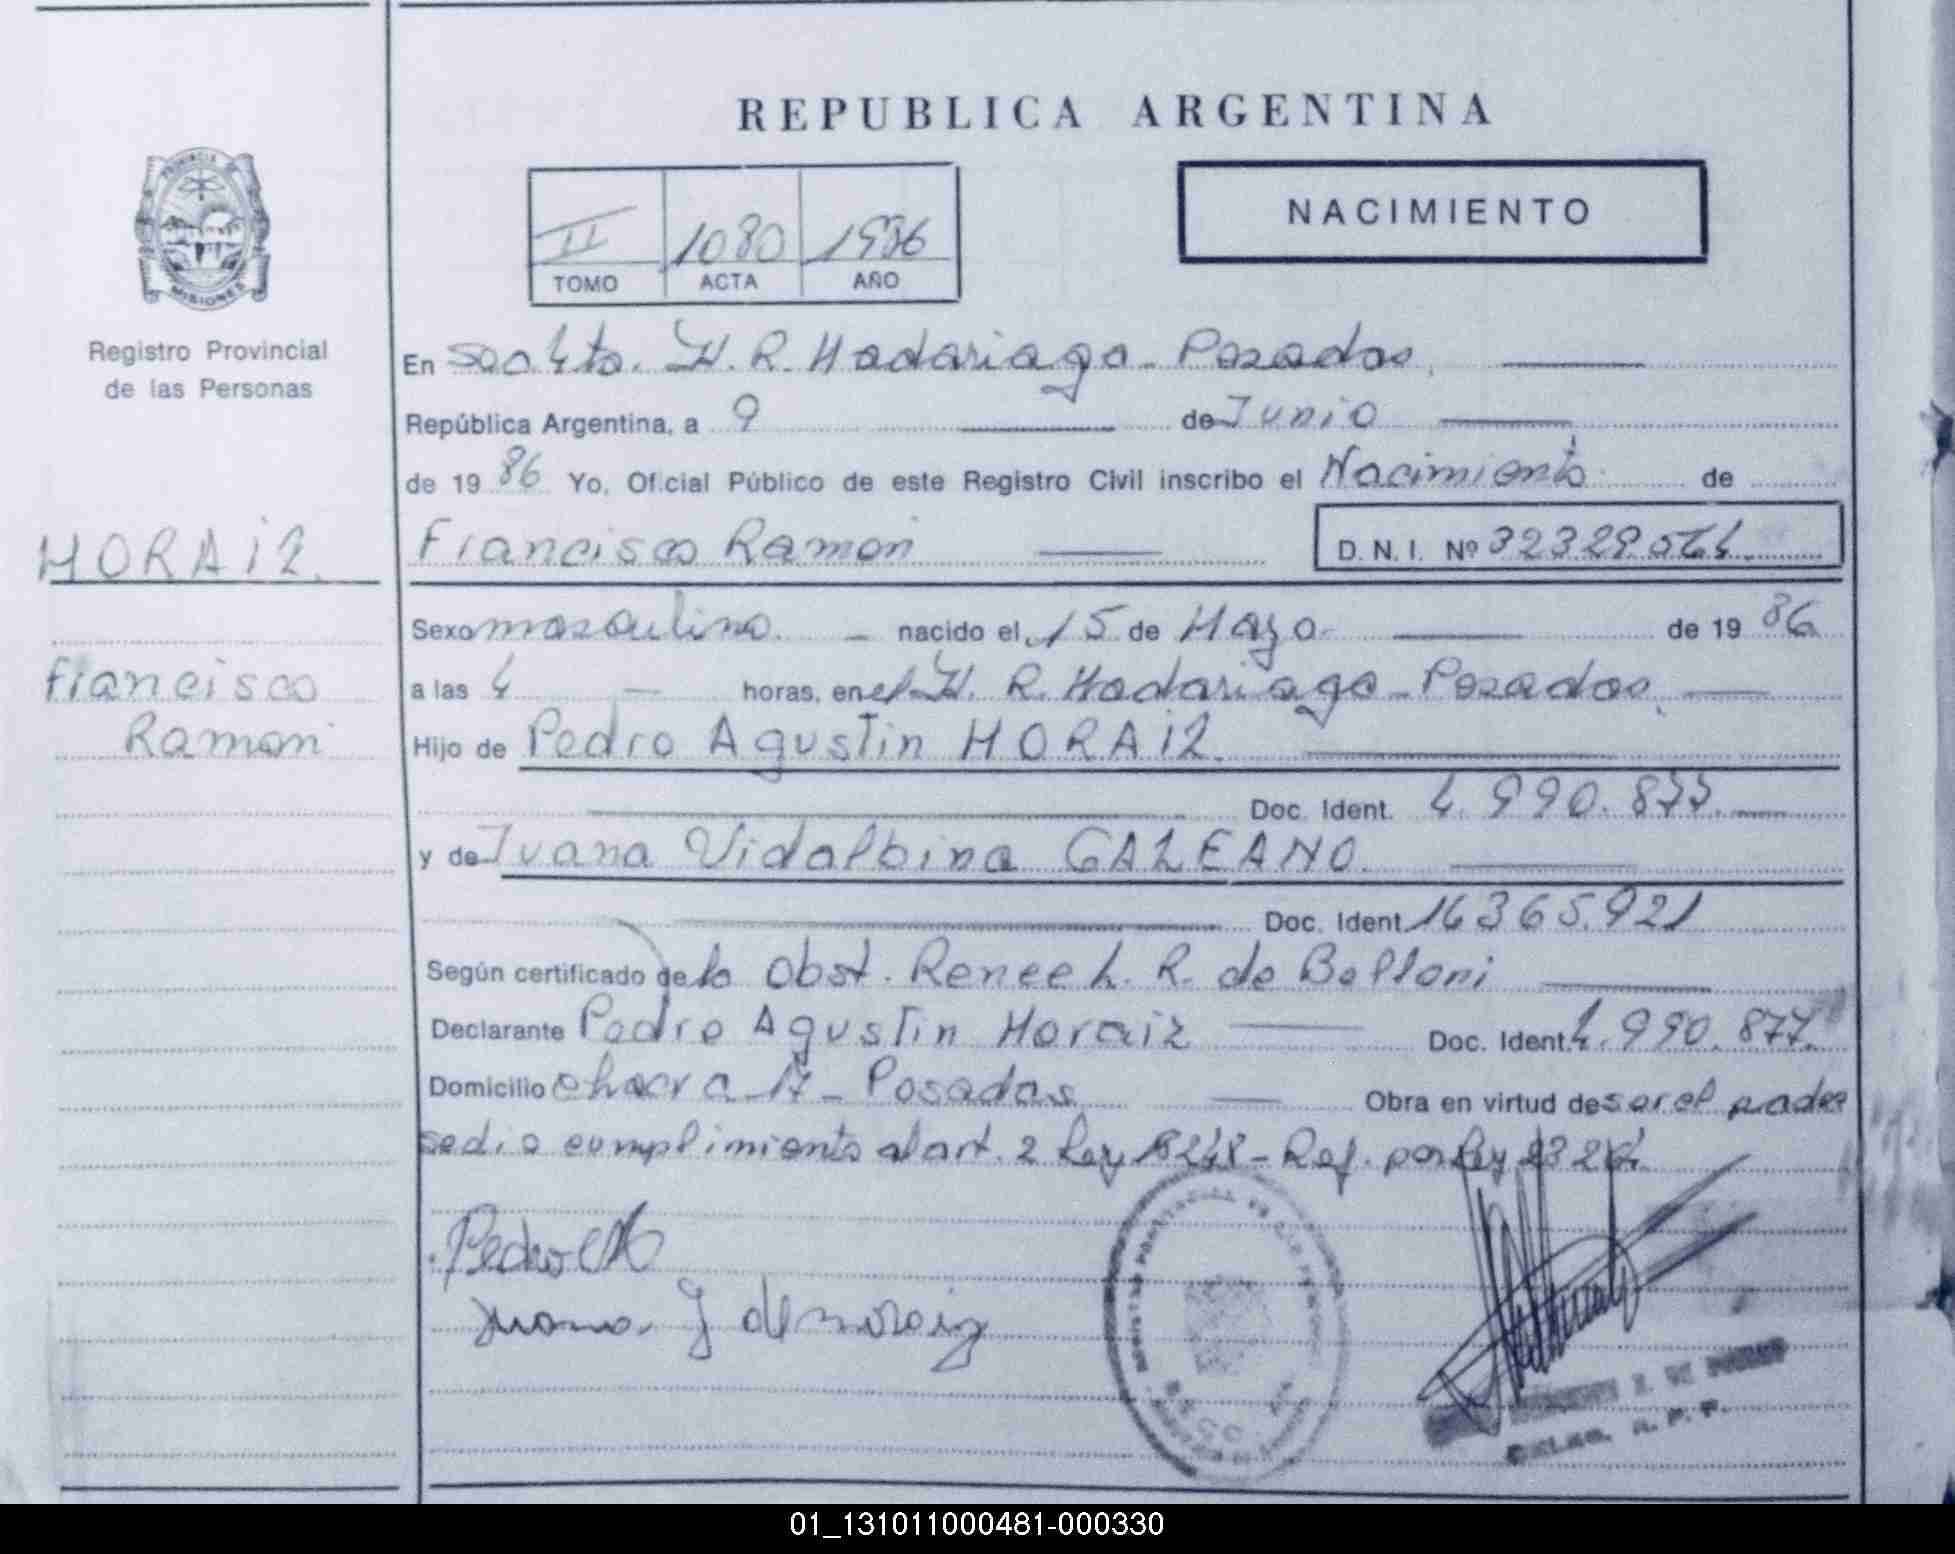 REPUBLICA ARGENTINA
PROVINCIA
MISIONES
Registro Provincial
de las Personas
II 1080 1986
TOMO ACTA AÑO
NACIMIENTO
En Secc 4ta. H. R. Madariaga - Posadas,
República Argentina, a 9 de Junio
de 19 86 Yo, Oficial Público de este Registro Civil inscribo el Nacimiento de
MORAIZ.
Francisco Ramon
D.N.I. Nº
Sexo masculino. nacido el 15 de Mayo de 19 86
Francisco
Ramon
a las 4 horas, en el H. R. Madariaga - Posadas,
Hijo de Pedro Agustin MORAIZ.
Doc. Ident. 4.990.877.
y de Juana Vidalbina GALEANO.
Doc. Ident. 16365.921
Según certificado de la Obst. Renee L. R. de Belloni
Declarante Pedro Agustin Moraiz Doc. Ident. 4.990.877.
Domicilio chacra 17 - Posadas Obra en virtud de ser el padre
se dio cumplimiento al art. 2 Ley 18248 - Ref. por Ley
Pedro
Juana G de moraiz
DELEG. R. P. P.
01_131011000481-000330